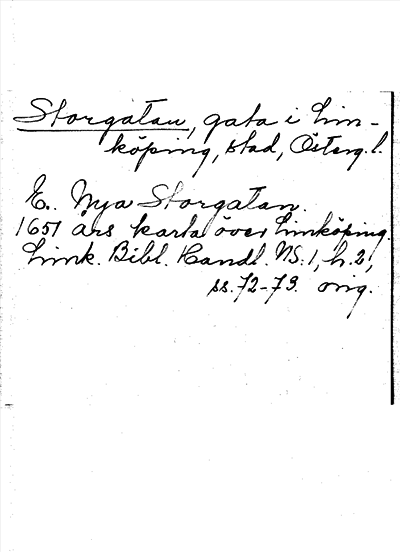 Storgatan, gata i Lin-
köping, stad, Österg.l.
E. Nya Storgatan.
1651 års karta över Linköping.
Link. Bibl. Handl. NS. 1, h. 2,
ss. 72-73. orig.